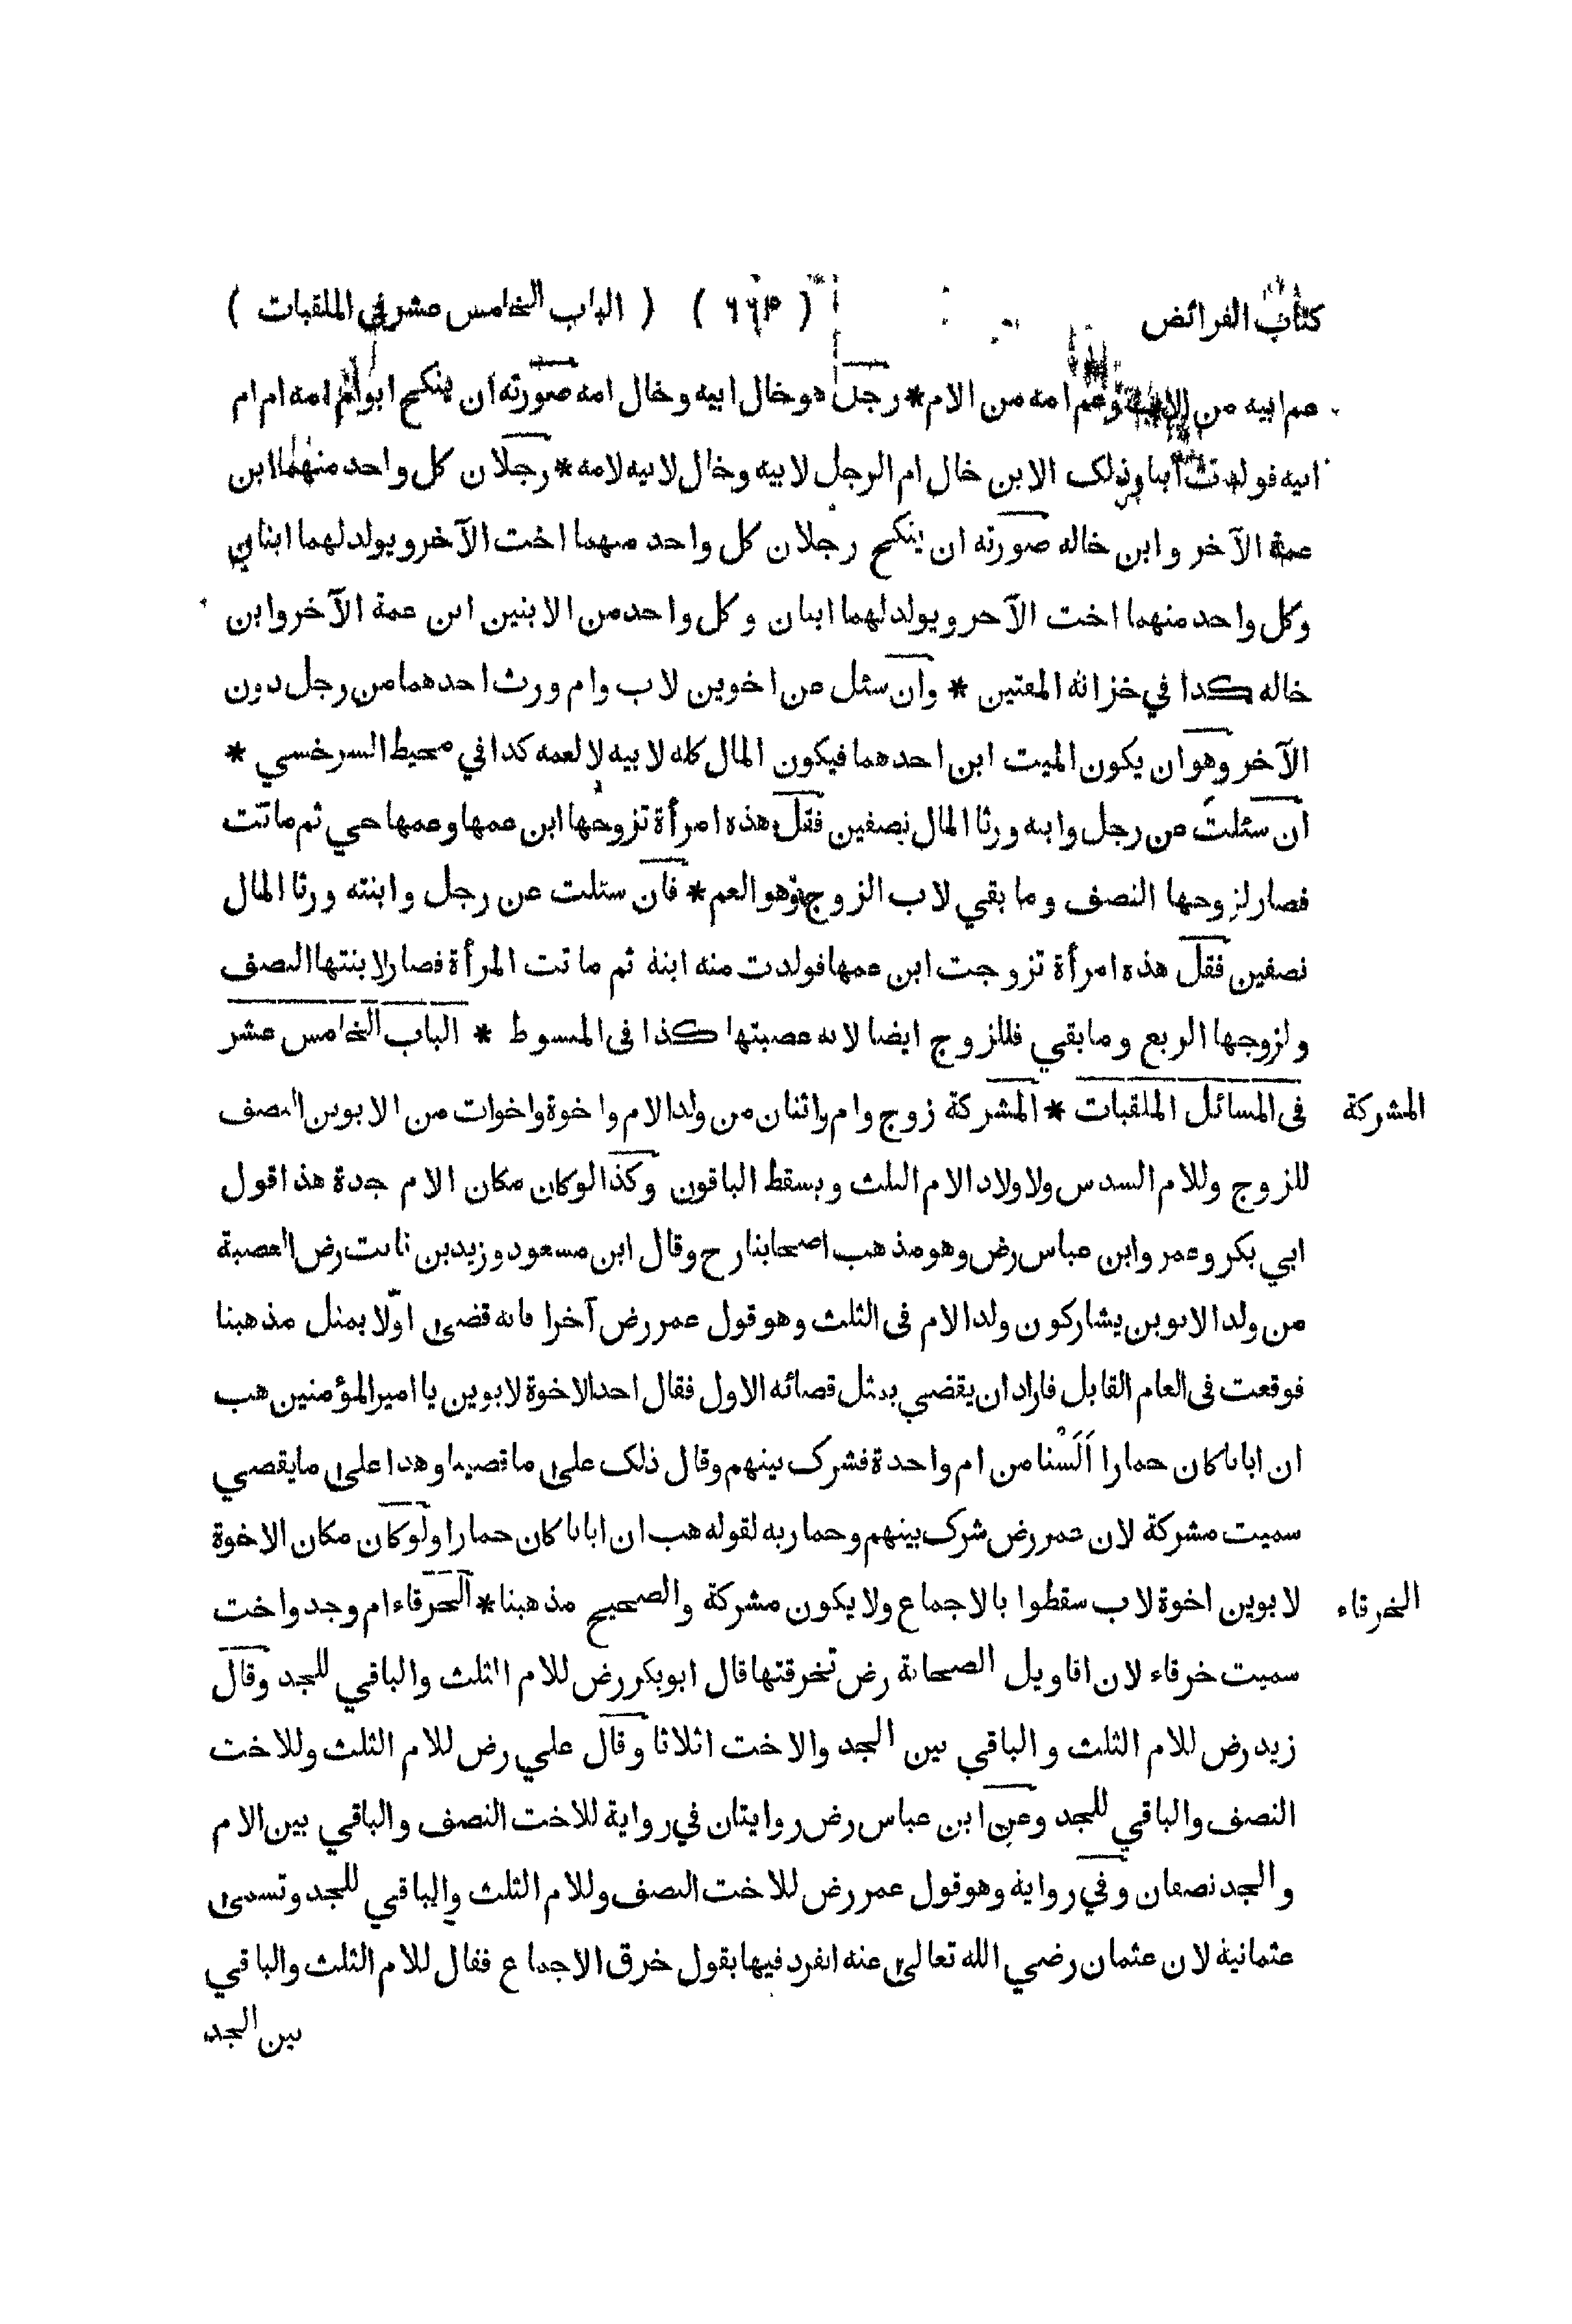 كتاب الفرائض ( ٦٦٣ ) ( الباب الخامس عشر في الملقبات )
عم ابيه من الاب وعم امه من الام * رجل هو خال ابيه وخال امه صورته ان ينكح ابو ام امه ام ام
ابيه فولدت ابنا وذلك الابن خال ام الرجل لابيه وخال لابيه لامه * رجلان كل واحد منهما ابن
عمة الآخر وابن خاله صورته ان ينكح رجلان كل واحد منهما اخت الآخر ويولد لهما ابنان
وكل واحد منهما اخت الآخر ويولد لهما ابنان وكل واحد من الابنين ابن عمة الآخر وابن
خاله كذا في خزانة المفتين * وان سئل عن اخوين لاب وام ورث احدهما من رجل دون
الآخر وهو ان يكون الميت ابن احدهما فيكون المال كله لابيه لا لعمه كذا في محيط السرخسي *
ان سئلت عن رجل وابنه ورثا المال نصفين فقل هذه امرأة تزوجها ابن عمها وعمها حي ثم ماتت
فصار لزوجها النصف وما بقي لاب الزوج وهو العم * فان سئلت عن رجل وابنته ورثا المال
نصفين فقل هذه امرأة تزوجت ابن عمها فولدت منه ابنة ثم ماتت المرأة فصار لابنتها النصف
ولزوجها الربع وما بقي فللزوج ايضا لانه عصبتها كذا فى المبسوط * الباب الخامس عشر
فى المسائل الملقبات * المشركة زوج وام واثنان من ولد الام واخوة واخوات من الابوين النصف
المشركة
للزوج وللام السدس ولاولاد الام الثلث ويسقط الباقون وكذا لو كان مكان الام جدة هذا قول
ابي بكر وعمر وابن عباس رض وهو مذهب اصحابنا رح وقال ابن مسعود وزيد بن ثابت رض العصبة
من ولد الابوين يشاركون ولد الام فى الثلث وهو قول عمر رض آخرا فانه قضى اوّلا بمثل مذهبنا
فوقعت فى العام القابل فاراد ان يقضي بمثل قضائه الاول فقال احد الاخوة لابوين يا امير المؤمنين هب
ان ابانا كان حمارا اَلَسْنا من ام واحدة فشرك بينهم وقال ذلك على ما قضينا وهذا على ما يقضي
سميت مشركة لان عمر رض شرك بينهم وحمارية لقوله هب ان ابانا كان حمارا ولو كان مكان الاخوة
لابوين اخوة لاب سقطوا بالاجماع ولا يكون مشركة والصحيح مذهبنا * الخرقاء ام وجد واخت
الخرقاء
سميت خرقاء لان اقاويل الصحابة رض تخرقتها قال ابو بكر رض للام الثلث والباقي للجد وقال
زيد رض للام الثلث والباقي بين الجد والاخت اثلاثا وقال علي رض للام الثلث وللاخت
النصف والباقي للجد وعن ابن عباس رض روايتان في رواية للاخت النصف والباقي بين الام
والجد نصفان وفي رواية وهو قول عمر رض للاخت النصف وللام الثلث والباقي للجد وتسمى
عثمانية لان عثمان رضي الله تعالى عنه انفرد فيها بقول خرق الاجماع فقال للام الثلث والباقي
بين الجد